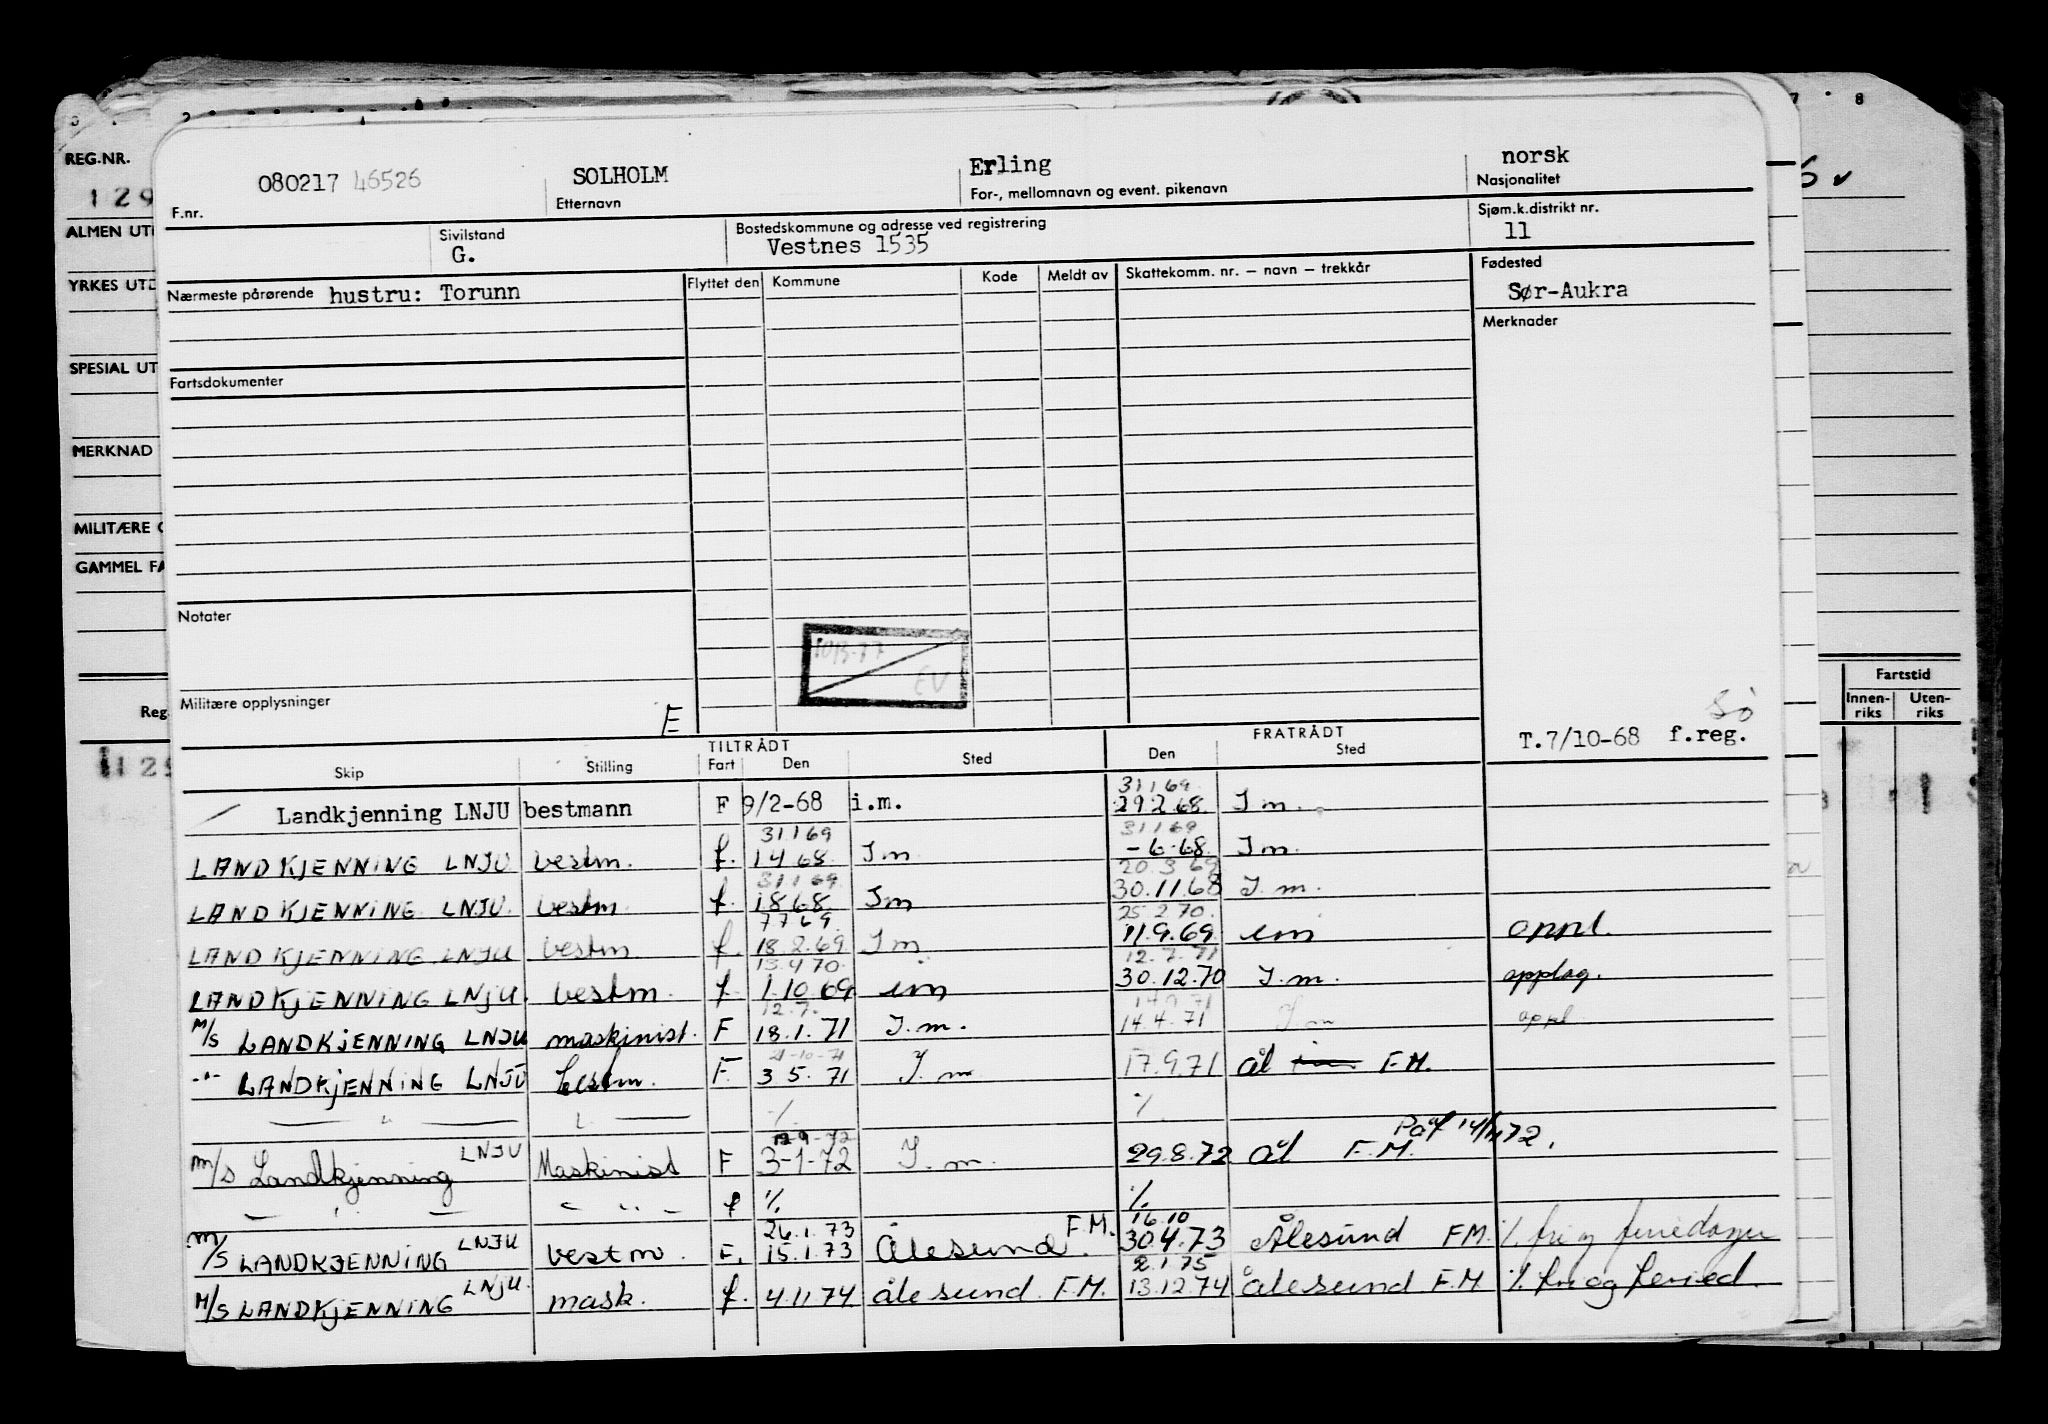 REG.NR.
129
ALMEN UT
YRKES UTD
SPESIAL UT
MERKNAD
MILITÆRE
GAMMEL FA
Reg
Fartstid
Innen-riks Uten-riks
080217 46526 SOLHOLM Erling norsk
F.nr. Etternavn For-, mellomnavn og event. pikenavn Nasjonalitet
Sivilstand Bostedskommune og adresse ved registrering Sjøm.k.distrikt nr.
G. Vestnes 1535 11
Nærmeste pårørende hustru: Torunn Flyttet den Kommune Kode Meldt av Skattekomm. nr. – navn – trekkår Fødested
Sør-Aukra
Merknader
Fartsdokumenter
Notater
EV
Militære opplysninger E
T.7/10-68 f.reg.
TILTRÅDT FRATRÅDT
Skip Stilling Fart Den Sted Den Sted
31 1 69
Landkjenning LNJU bestmann F 9/2-68 i.m. 29 2 68 I m.
31 1 69 31 1 69
LANDKJENNING LNJU bestm. f. 1 4 68 I m - 6 68 I m.
31 1 69 20.3 69
LANDKJENNING LNJU. bestm. f. 1 8 68 I m 30.11.68 I. m.
7 7 69 25 2 70.
LANDKJENNING LNJU bestm f. 18.2.69 I m 11.9.69 im oppl.
13.4 70. 12.7.71
LANDKJENNING LNJU. bestm. f 1.10 69 im 30.12.70 I.m. opplag.
12.7.
M/S LANDKJENNING LNJU maskinist. F 18.1.71 I.m. 14.4.71 I m oppl
21-10-71
-"- LANDKJENNING LNJU bestm. F. 3 5. 71 I. m 17.9.71 ål F.M.
— " — %. %.
12 9-72 Påf 14/11 72.
M/S Landkjenning LNJU Maskinist F 3-1-72 I. m. 29.8.72 ål F.M.
— " — — " — f %. %.
26.1.73 16.10
M/S LANDKJENNING LNJU bestm. F. 15.1.73 Ålesund F.M. 30.4.73 Ålesund FM. %. fri og feriedager
2.1.75
M/S LANDKJENNING LNJU. mask. f. 4.11.74 ålesund F.M. 13.12.74 ålesund F.M %. fri og feried.